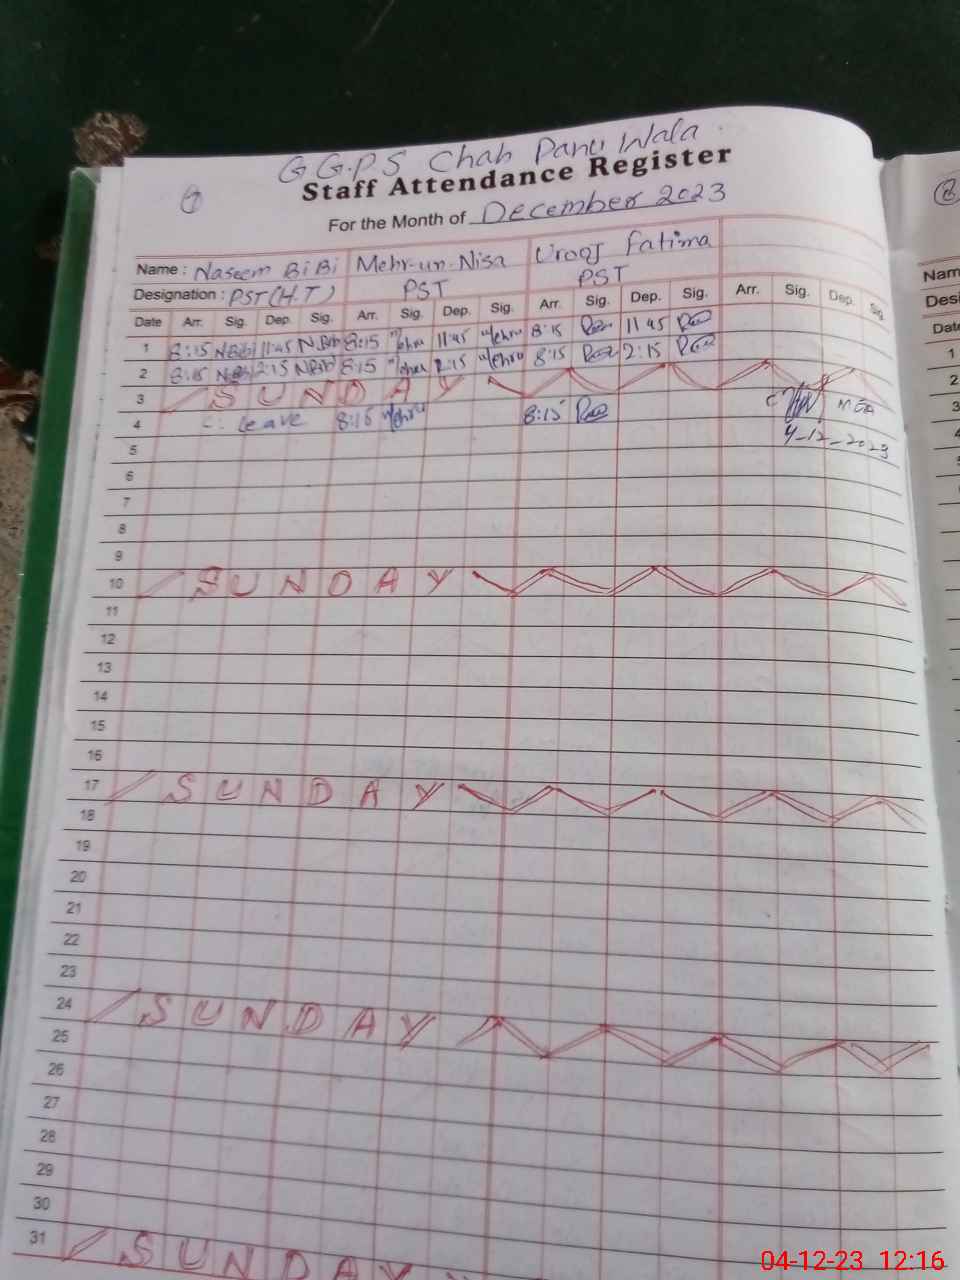 G.G.P.S Chah Panu Wala
Staff Attendance Register
For the Month of December 2023
Name : Naseem BiBi Mehr-un-Nisa Urooj Fatima
Designation : PST (H.T) PST PST
Date Arr. Sig. Dep. Sig. Arr. Sig. Dep. Sig. Arr. Sig. Dep. Sig. Arr. Sig. Dep. Sig.
1 8:15 N.Bibi 11:45 N.Bibi 8:15 Mehru 11:45 Mehru 8:15 11:45
2 8:15 N.Bibi 2:15 N.Bibi 8:15 Mehru 2:15 Mehru 8:15 2:15
3 SUNDAY
4 C. Leave 8:15 Mehru 8:15
4-12-2023
5
6
7
8
9
10 SUNDAY
11
12
13
14
15
16
17 SUNDAY
18
19
20
21
22
23
24 SUNDAY
25
26
27
28
29
30
31 SUNDAY
Nam
Desi
Date
1
2
3
4
04-12-23 12:16